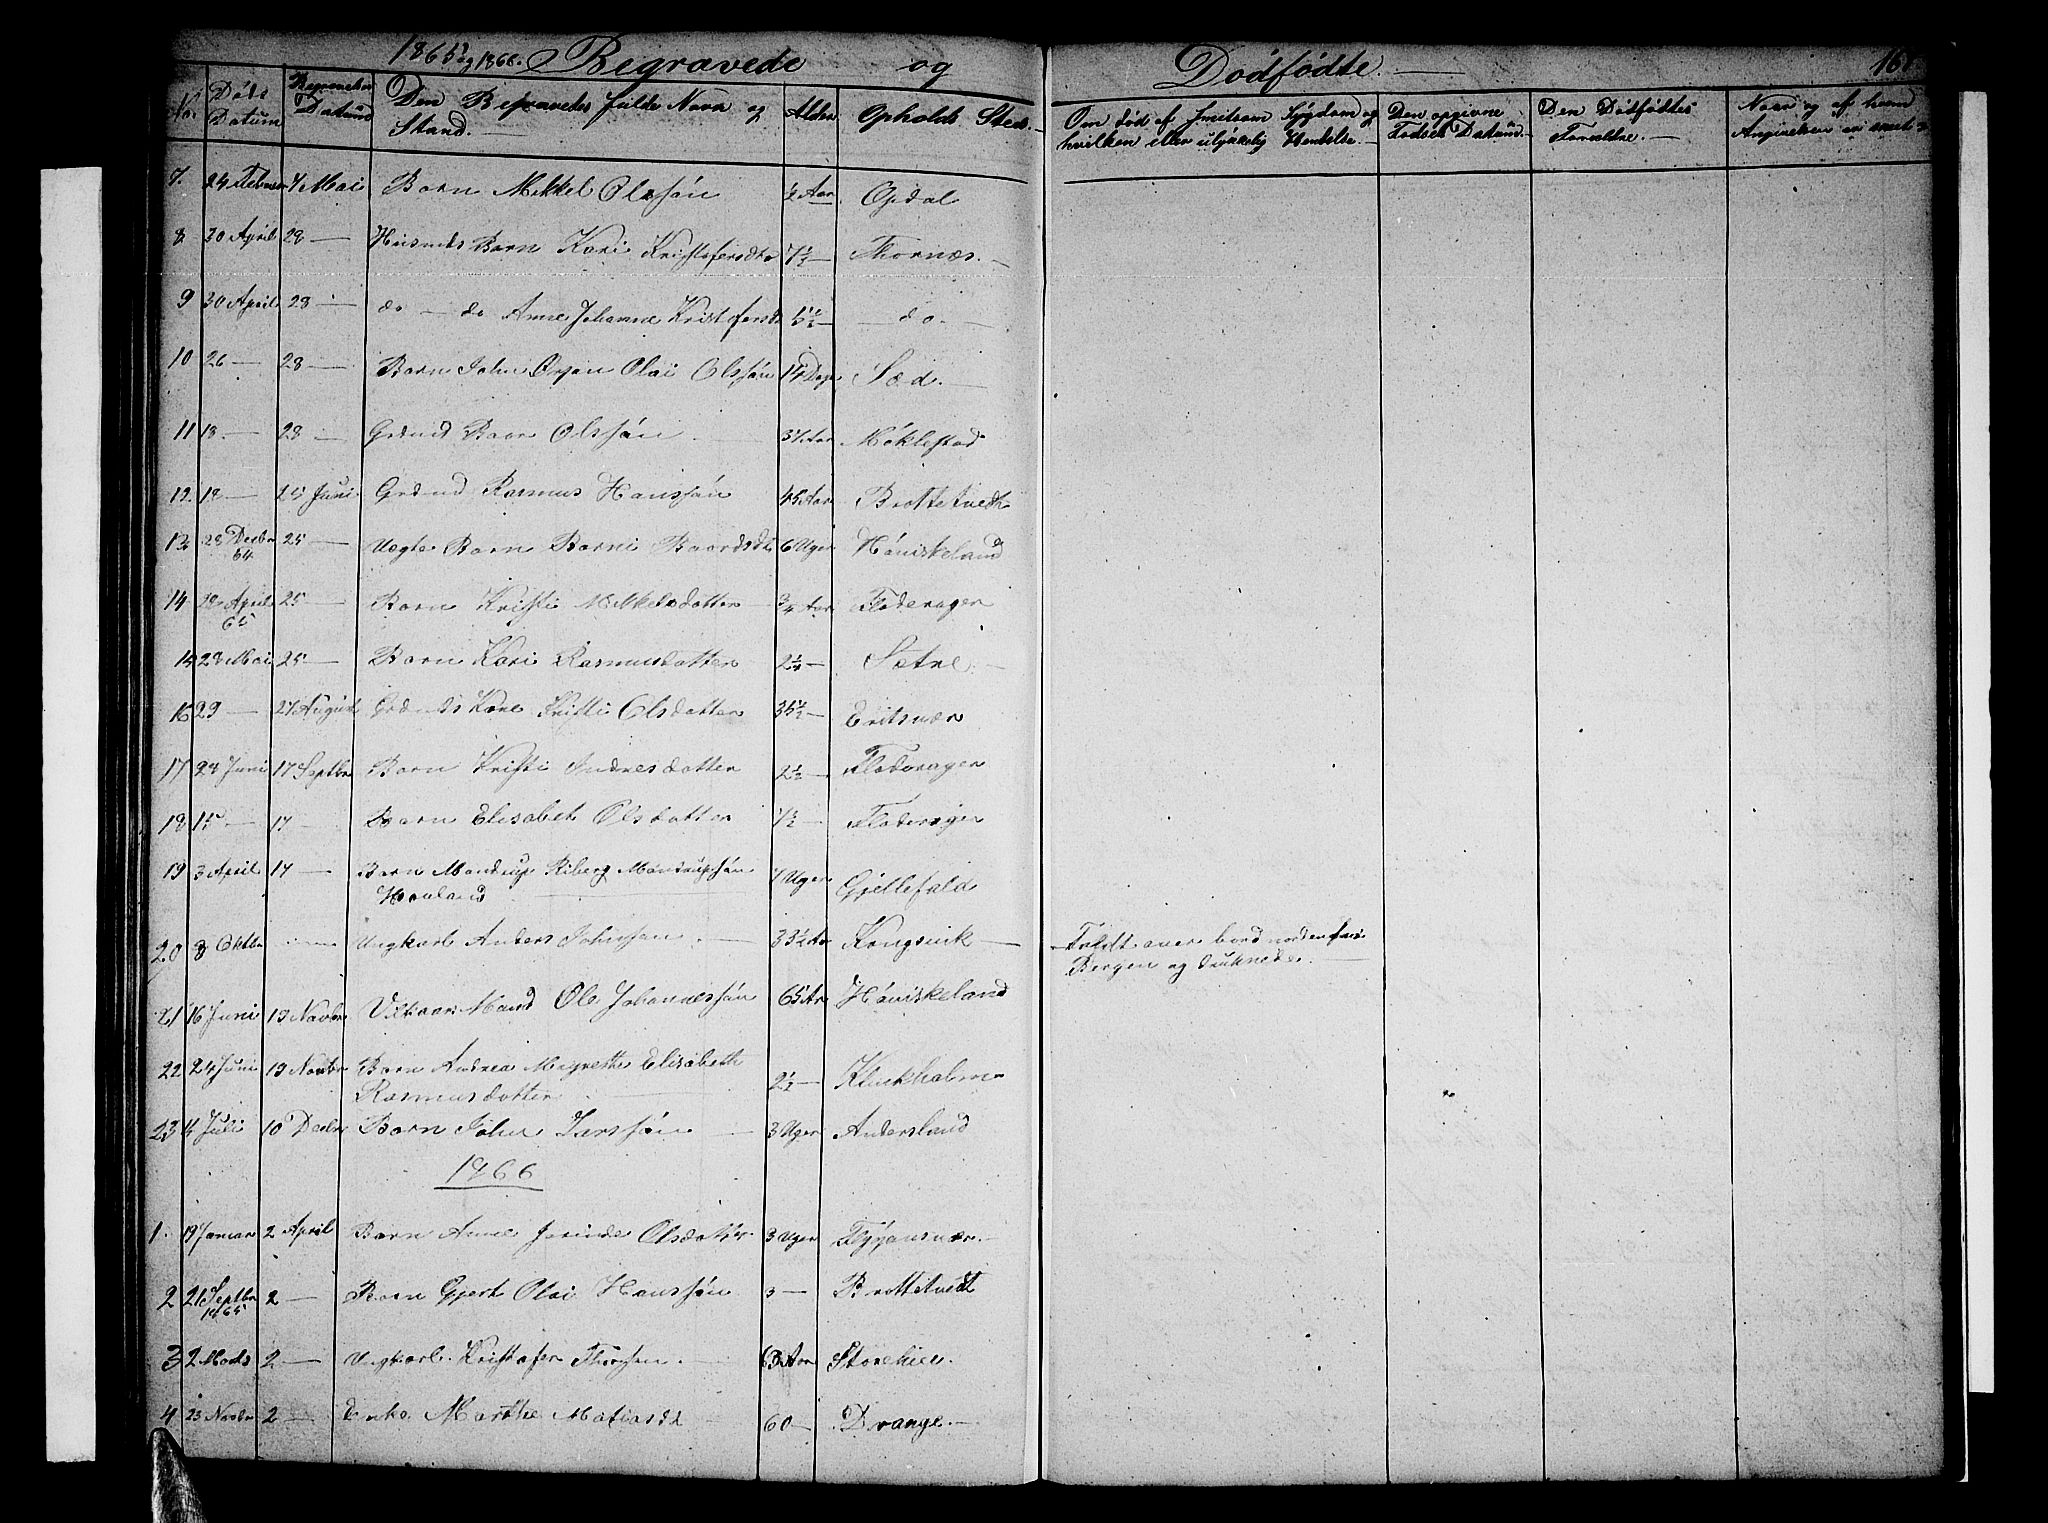 1865 og 1866. Begravede og Dödfødte. 161
No. Döds Datum Begravelses Datum Den Begravedes fulde Navn og Stand. Alder Opholds Sted. Om död af smitsom Sygdom og hvilken eller ulykkelig Hendelse. Den opgivne Födsels Datum. Den Dödfødtes Forældre. Naar og af hvem Angivelsen er
7. 24 Februar 7 Mai Barn Mikkel Olssön ½ Aar Opdal
8 30 April 28 — Husmds Barn Kari Kristofersdtr 7½ — Thornæs. —
9 30 April 28 — do — do Anne Johanne Kristofersdt 5½ — — do. —
10 26 — 28 — Barn John Ørjan Olai Olssön 14 Dage Sæd. —
11 18 — 28 — Grdmd Olssön 37 Aar Möklestad
12 18 — 25 Juni Grdmd Rasmus Hanssön 45 Aar Brottetvedt
13 28 Decbr 64 25 — Uegte Barn Barni Baardsdt 6 Uger Höviskeland
14 28 April 65 25 — Barn Kristi Mikkelsdotter ¾ Aar Flodevager
14 28 Mai 25 — Barn Kari Rasmusdotter 2¼ — Sætre. —
16 29 — 27 August Grdmds Kone Kristi Olsdotter 35½ — Eritsvær
17 28 Juni 17 Septbr Barn Kristi Indresdotter 2½ — Flodevager
18 15 — 17 — Barn Elisabet Olsdotter 7½ — Flodevager
19 3 April 17 — Barn Mandrup Riberg Mandrupssön
Hovland 7 Uger Gjellefald
20 8 Oktbr — Ungkarl Anders Johnsen. — 33½ Ar Kongsvik — Faldt over bord norden for
Bergen og druknede. —
21 16 Juni 19 Novbr Vilkaars Mand Ole Johannessön 65 Ar Höviskeland
22 24 Juni 19 Novbr Barn Andrea Margrethe Elisabeth
Rasmusdotter 2½ — Klurkholm
23 4 Juli 10 Decbr Barn John Larssön — 3 Uger Andersland
1866
1. 19 Januar 2 April Barn Anne Olsdotter. 3 Uger Flygansvær. —
2 21 Septbr 1865 2 — Barn Gjert Olai Hanssön 3 — Brottetvedt
3 2 Mads 2 — Ungkarl. Kristofer Thorsen. — 63 Aar Storehier.
4 23 Novbr 2 — Enke Marthe Matiasdt 60 — Drange. —